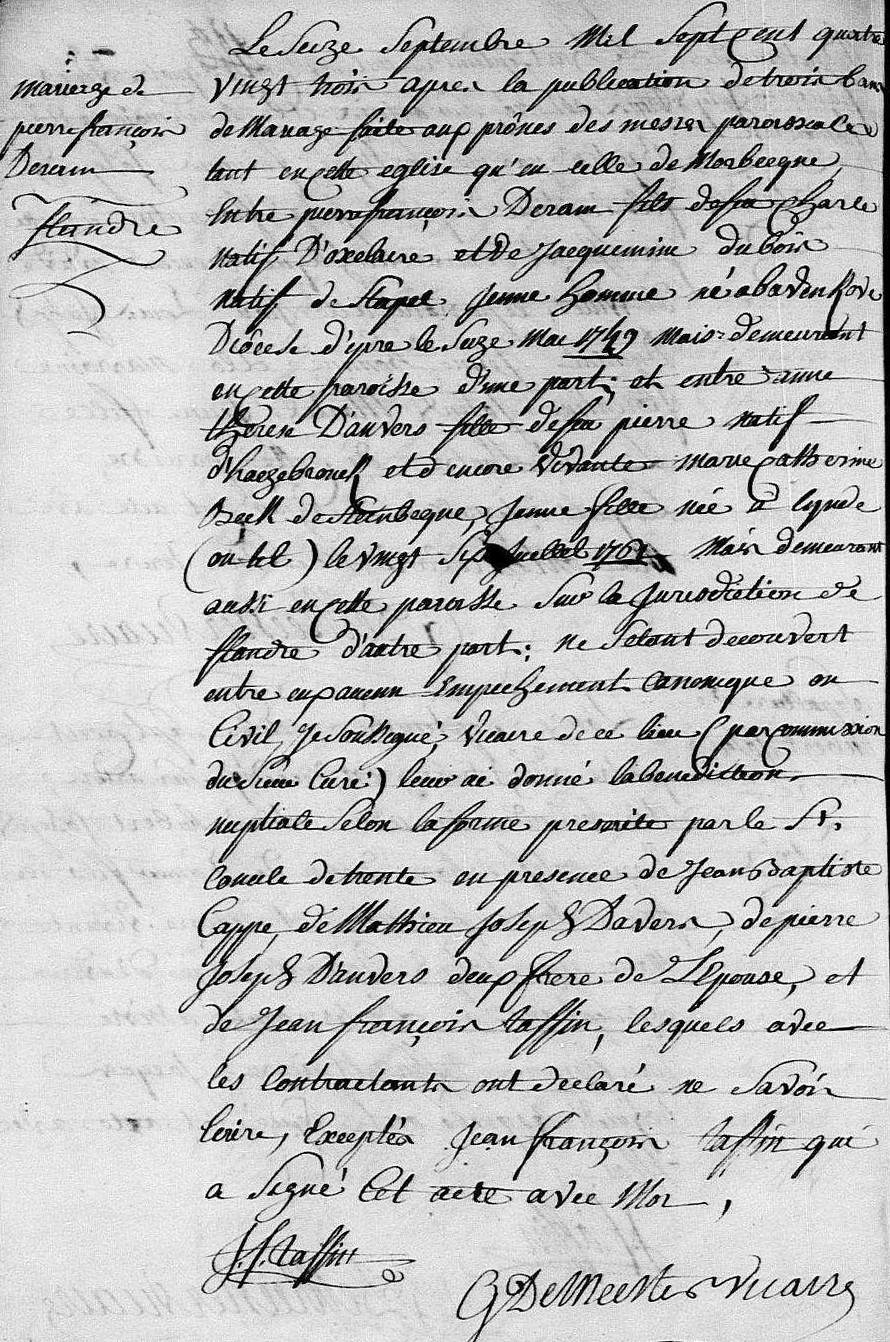 mariage de
pierre françois
Deram
flandre
Le Seize Septembre Mil Sept Cent quatre
vingt trois apres la publication de trois bans
de Mariage faite aux prônes des messes paroissiales
tant en cette eglise qu'en celle de Morbecque
Entre pierre françois Deram fils de feu Charle
natif D'oxelaere et de Jacquemine dubois
natif de Stapel Jeune homme né a bavenkove
Diôcese d'ipre le Seize Mai 1749 Mais demeurant
en cette paroisse d'une part; et entre anne
therese D'anvers fille de feu pierre natif
d'hazebrouck et d'encore vivante marie Catherine
Beck de Steinbeque, Jeune fille née a lynde
(ou tel) le vingt Juillet 1761 Mais demeurant
aussi en cette paroisse Sur la Jurisdiction de
flandre d'autre part; ne S'etant decouvert
entre eux aucun Empechement Canonique ou
Civil, Je Soussigné, Vicaire de ce lieu (par commission
du Sieur Curé:) leur ai donné la benediction
nuptiale Selon la forme prescrite par le St.
Concile de trente en presence de Jean Baptiste
Cappe, de Mathieu Joseph Davers, de pierre
Joseph D'anvers deux frere de L'Epouse, et
de Jean françois taffin, lesquels avec
les Contractants ont declaré ne Savoir
Ecrire, Exceptés Jean françois taffin qui
a Signé Cet acte avec Moi,
J. f. taffin
DeMeester vicaire